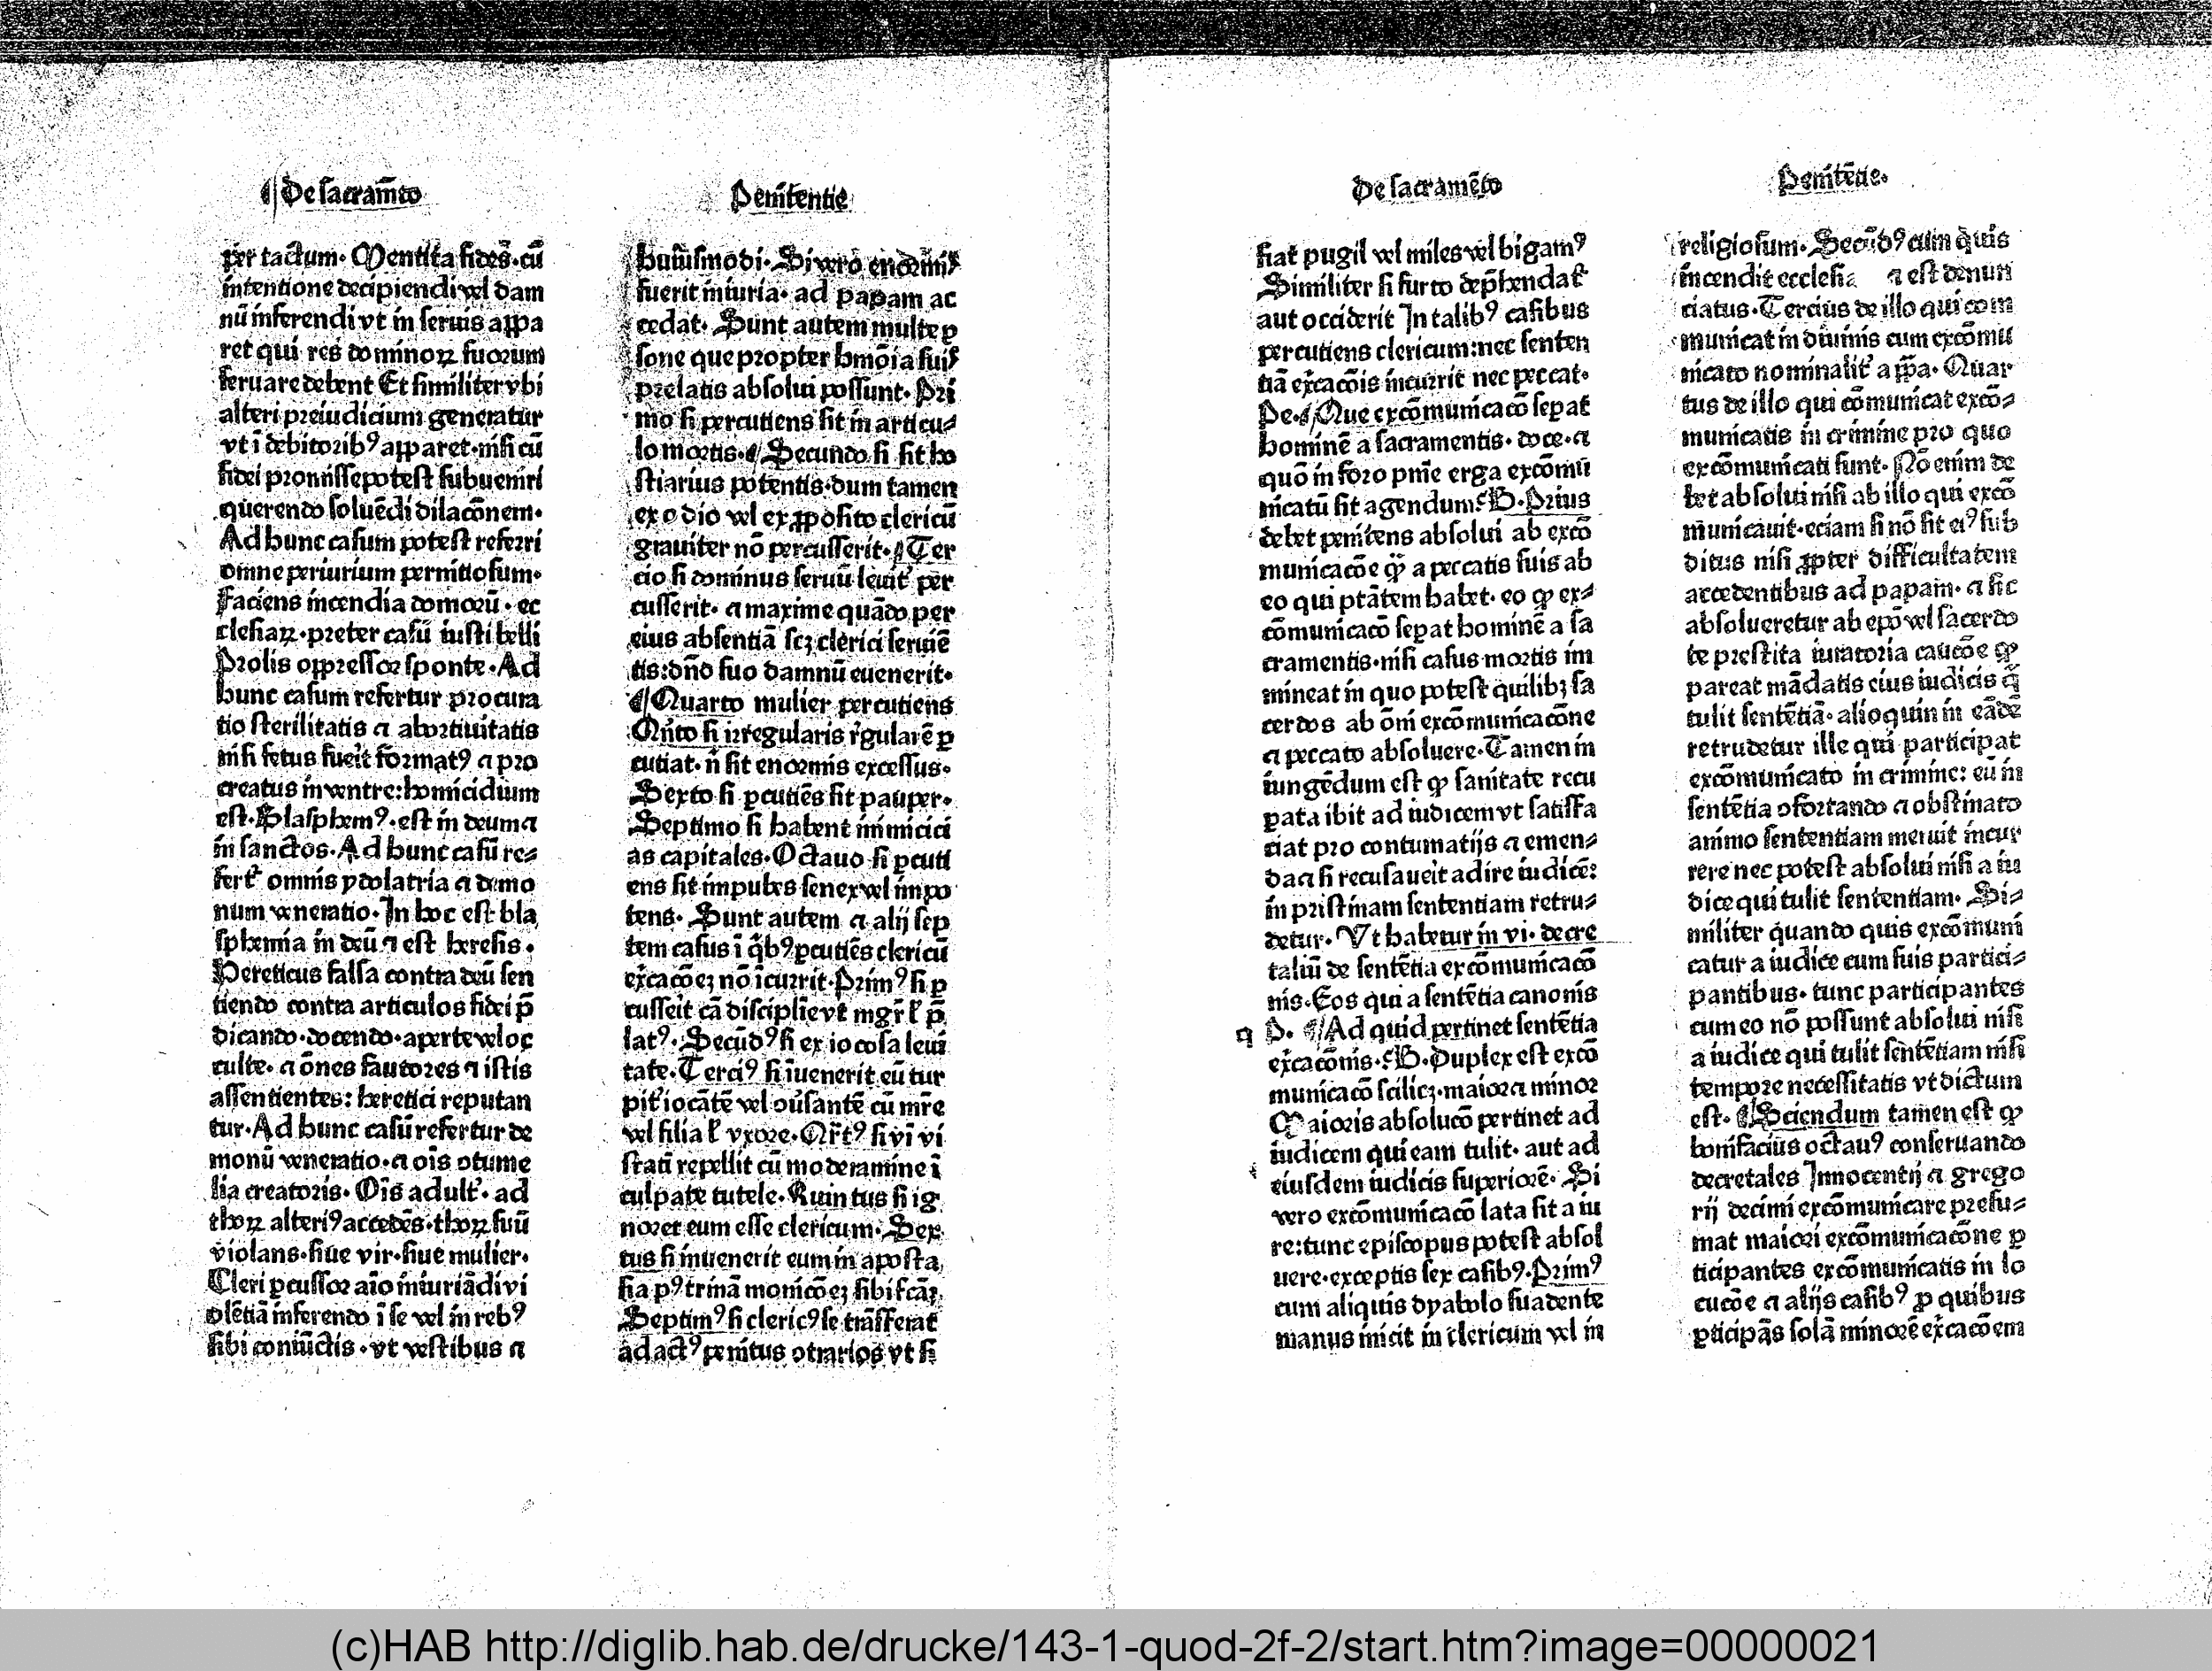 De sacram̄to
Penitentie
per tactum. Mentita fides. cū
intentione decipiendi vel dam
nū inferendi vt in seruis appa
ret qui res dominoꝝ suorum
seruare debent Et similiter vbi
alteri preiudicium generatur
vt ī debitoribꝰ apparet. nisi cū
fidei promisse potest subueniri
querendo soluēdi dilacōnem.
Ad hunc casum potest referri
omne periurium pernitiosum.
Faciens incendia domorū. ec
clesiaꝝ. preter casū iusti belli
Prolis oppressor sponte. Ad
hunc casum refertur procura
tio sterilitatis ⁊ abortiuitatis
nisi fetus fueit̓ formatꝰ ⁊ pro
creatus in ventre: homicidium
est. Blasphemꝰ. est in deum ⁊
in sanctos. Ad hunc casū re⸗
fert̉ omnis ydolatria ⁊ demo
num veneratio. In hoc est bla
sphemia in deū ⁊ est heresis.
Hereticus falsa contra deū sen
tiendo contra articulos fidei p̄
dicando. docendo. aperte vel oc
culte. ⁊ ōnes fautores ⁊ istis
assentientes: heretici reputan
tur. Ad hunc casū refertur de
monū veneratio. ⁊ oīs ↄtume
lia creatoris. Oīs adult̓. ad
thoꝝ alteriꝰ accedēs. thoꝝ suū
violans. siue vir. siue mulier.
Cleri ꝑcussor aīo iniuriādi vi
olētiā inferendo ī se vel in rebꝰ
sibi coniūctis. vt vestibus ⁊
huiūsmodi. Si vero enormis
fuerit iniuria. ad papam ac
cedat. Sunt autem multe ꝑ
sone que propter hmōi a suis
prelatis absolui possunt. Pri
mo si percutiens sit in articu⸗
lo mortis. ¶ Secundo si sit ho
stiarius potentis. dum tamen
ex odio vel ex ꝓposito clericū
grauiter nō percusserit. ¶ Ter
cio si dominus seruū leuit̓ per
cusserit. ⁊ maxime quādo per
eius absentiā scꝫ clerici seruiē
tis: dn̄o suo damnū euenerit.
¶ Quarto mulier percutiens
Qn̄to si irregularis r̓gularē ꝑ
cutiat. n̄ sit enormis excessus.
Sexto si ꝑcutiēs sit pauper.
Septimo si habent inimicici
as capitales. Octauo si ꝑcuti
ens sit impubes senex vel impo
tens. Sunt autem ⁊ alij sep
tem casus ī q̄bꝰ ꝑcutiēs clericū
ex̄cacōeꝫ nō īcurrit. Primꝰ si ꝑ
cusseit̓ cā disciplīe vt mgr̄ ł p̄
latꝰ. Secūdꝰ si ex iocosa leui
tate. Terciꝰ si īuenerit eū tur
pit̓ iocātē vel ↄu̓santē cū mr̄e
vel filia ł vxore. Qr̄tꝰ si vī vi
statī repellit cū moderamine ī
culpate tutele. Quintus si ig
noret eum esse clericum. Sex
tus si inuenerit eum in aposta
sia pꝰ trinā monicōeꝫ sibi fcāꝫ
Septimꝰ si clericꝰ se trāsferat
ad actꝰ penitus ↄtrarios vt si
De sacramēto
Penitētie.
fiat pugil vel miles vel bigamꝰ
Similiter si furto dep̄hendat̉
aut occiderit In talibꝰ casibus
percutiens clericum: nec senten
tiā ex̄cacōis incurrit nec peccat.
Pe. ¶ Que excōmunicacō sepat
hominē a sacramentis. doce. ⁊
quō in foro pnīe erga excōmu
nicatū sit agendum. B. Prius
debet penitens absolui ab excō
municacōe ꝙ̄ a peccatis suis ab
eo qui ptātem habet. eo ꝙ ex⸗
cōmunicacō sepat hominē a sa
cramentis. nisi casus mortis im
mineat in quo potest quilibꝫ sa
cerdos ab ōni excōmunicacōne
⁊ peccato absoluere. Tamen in
iungēdum est ꝙ sanitate recu
ꝑata ibit ad iudicem vt satisfa
ciat pro contumatijs ⁊ emen⸗
da ⁊ si recusaueit̓ adire iudicē:
in pristinam sententiam retru⸗
detur. Vt habetur in vi. decre
taliū de sentētia excōmunicacō
nis. Eos qui a sentētia canonis
q P. ¶ Ad quid pertinet sentētia
ex̄cacōnis. B. Duplex est excō
municacō scilicꝫ. maior ⁊ minor
Maioris absolucō pertinet ad
iudicem qui eam tulit. aut ad
eiusdem iudicis superiorē. Si
vero excōmunicacō lata sit a iu
re: tunc episcopus potest absol
uere. exceptis sex casibꝰ. Primꝰ
cum aliquis dyabolo suadente
manus inicit in clericum vel in
religiosum. Secūdꝰ cum quis
incendit ecclesia ⁊ est denun
ciatus. Tercius de illo qui com
municat in diuinis cum excōmu
nicato nominalit̓ a ppa. Quar
tus de illo qui cōmunicat excō⸗
municatis in crimine pro quo
excōmunicati sunt. Nō enim de
bet absolui nisi ab illo qui excō
municauit. eciam si nō sit eiꝰ sub
ditus nisi ꝓpter difficultatem
accedentibus ad papam. ⁊ sic
absolueretur ab epō vel sacerdo
te prestita iuratoria caucōe ꝙ
pareat mādatis eius iudicis q̄
tulit sentētiā. alioquin in eādē
retrudetur ille qui participat
excōmunicato in crimine: eū in
sentētia ↄfortando ⁊ obstinato
animo sententiam meruit incur
rere nec potest absolui nisi a iu
dice qui tulit sententiam. Si⸗
militer quando quis excōmuni
catur a iudice cum suis partici⸗
pantibus. tunc participantes
cum eo nō possunt absolui nisi
a iudice qui tulit sentētiam nisi
tempore necessitatis vt dictum
est. ¶ Sciendum tamen est ꝙ
bonifacius octauꝰ conseruando
decretales Innocentij ⁊ grego
rij decimi excōmunicare presu⸗
mat maiori excōmunicacōne ꝑ
ticipantes excōmunicatis in lo
cucōe ⁊ alijs casibꝰ ꝓ quibus
ꝑticipās solā minorē ex̄cacōem
(c)HAB http://diglib.hab.de/drucke/143-1-quod-2f-2/start.htm?image=00000021